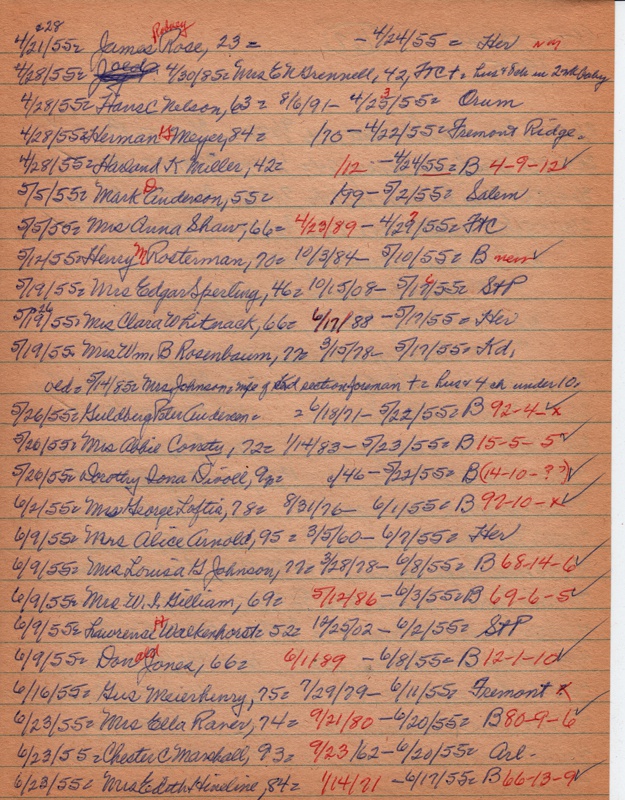 & 28 Rodney
4/21/55= James Rose, 23 = - 4/24/55 = Her
4/28/55= 4/30/85= Mrs E N Grennell, 42, FtC + =
4/28/55= Hans C Nelson, 63 = 8/6/91 - 4/23/55= Orum
4/28/55= Herman H Meyer, 84= /70 - 4/22/55= Fremont Ridge.
4/28/55= Harland K Miller, 42= 1/12 - 4/24/55= B 4-9-12 ✓
5/5/55= Mark D Anderson, 55= /99 - 5/2/55= Salem
5/5/55= Mrs Anna Shaw, 66= 4/23/89 - 4/29/55= FtC
5/12/55= Henry M Rosterman, 70= 10/3/84 - 5/10/55= B new ✓
5/19/55= Mrs Edgar Sperling, 46= 10/15/08 - 5/17/55= StP
5/19/55= Mrs Clara Whitenack, 66= 6/17/88 - 5/17/55= Her
5/19/55= Mrs Wm. B Rosenbaum, 77= 3/15/78 - 5/17/55= Kd,
old= 5/14/85= Mrs Johnson= wife of Kd section foreman + = hus & 4 ch under 10.
5/26/55= Guldberg Peter Andersen= = 6/18/71 - 5/22/55= B 92-4-x
5/26/55= Mrs Abbie Conety, 72= 1/14/83 - 5/23/55= B 15-5-5 ✓
5/26/55= Dorothy Iona Divoll, 9= /46 - 5/22/55= B (14-10-??) ✓
6/2/55= Mrs George Loftis, 78= 8/31/76 - 6/1/55= B 92-10-x ✓
6/9/55= Mrs Alice Arnold, 95= 3/5/60 - 6/7/55= Her
6/9/55= Mrs Louisa G Johnson, 77= 3/28/78 - 6/8/55= B 68-14-6 ✓
6/9/55= Mrs W. I. Gilliam, 69= 5/12/86 - 6/3/55= B 69-6-5 ✓
6/9/55= Lawrence H Walkenhorst= 52= 12/25/02 - 6/2/55= StP
6/9/55= Donald Jones, 66= 6/1/89 - 6/8/55= B 12-1-10 ✓
6/16/55= Gus Meierhenry, 75= 7/29/79 - 6/11/55= Fremont x
6/23/55= Mrs Ella Raner, 74= 9/21/80 - 6/20/55= B 80-9-6 ✓
6/23/55= Chester C Marshall, 93= 9/23/62 - 6/20/55= Arl-
6/23/55= Mrs Edith Hineline, 84= 1/14/71 - 6/17/55= B 66-13-9 ✓